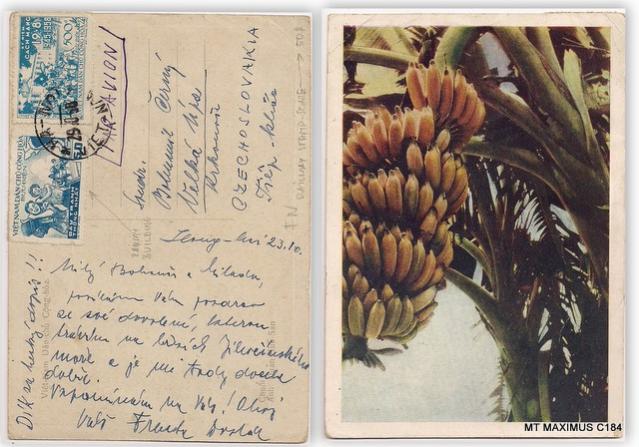 CÁCH MẠNG
19-8
1945-1958
500đ
VIỆT-NAM DÂN-CHỦ CỘNG-HÒA
50đ
ĐẤU TRANH
THỐNG NHẤT
PAR AVION
Soudr.
Bohumil Černý
Velká Úpa
Krkonoše
CZECHOSLOVAKIA
23.10.
Milý Bohouši a Milado,
posílám Vám pozdrav
ze své dovolené, kterou
trávím na
moře a je mi tady docela
dobře.
Vzpomínám na Vás! Ahoj
Váš
Dík za hezký dopis!!
Việt-Nam Dân-Chủ Cộng-Hòa
MT MAXIMUS C184